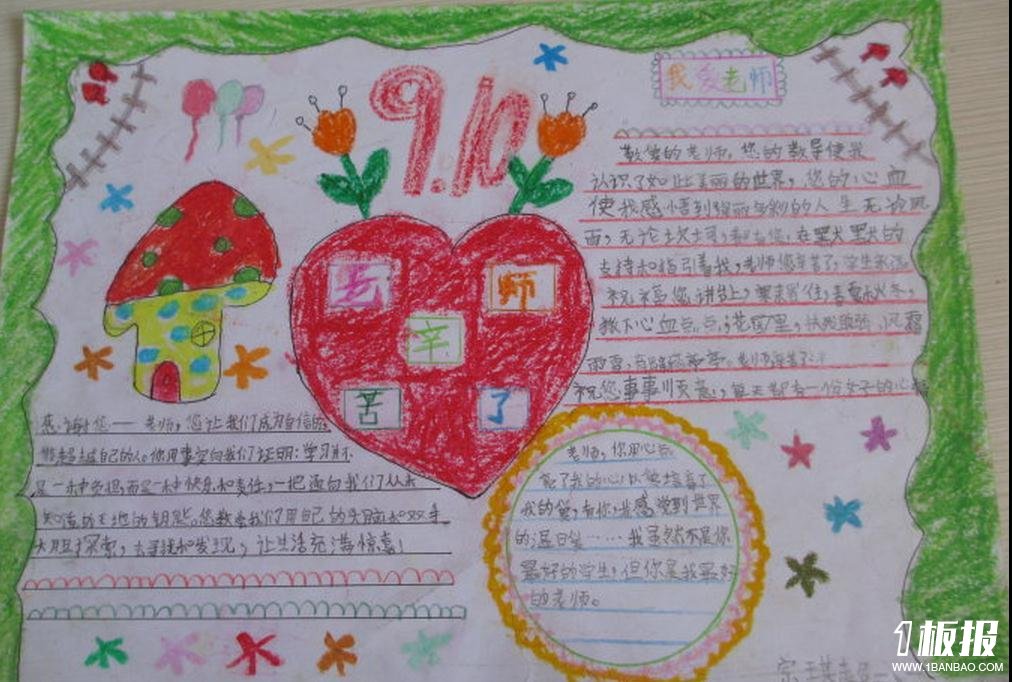 9.10
我爱老师
老师
辛
苦了
敬爱的老师,您的教导使我
认识了如此美丽的世界,您的心血
使我感悟到绚丽多彩的人生无论风
雨,无论坎坷,都有您,在默默的
支持和指引着我,老师您辛苦了,学生永远
祝福您讲台上,寒来暑往,春夏秋冬,
撒下心血点点,花园里,
雨雪,老师辛苦了
祝您事事顺意,每天都有一份好的心
感谢您——老师,您让我们成为自信的
能超越自己的人。你用事实向我们证明:学习不
是一种负担,而是一种快乐和责任,一把通向我们了从未
知道的天地的钥匙。您教会我们用自己的头脑和双手
大胆探索,去寻找和发现,让生活充满惊喜!
老师,你用心点
亮了我的心,以爱培育了
我的爱,有你,我感觉到世界
的温日爱……我虽然不是你
最好的学生,但你是我最好
的老师。
1板报
WWW.1BANBAO.COM